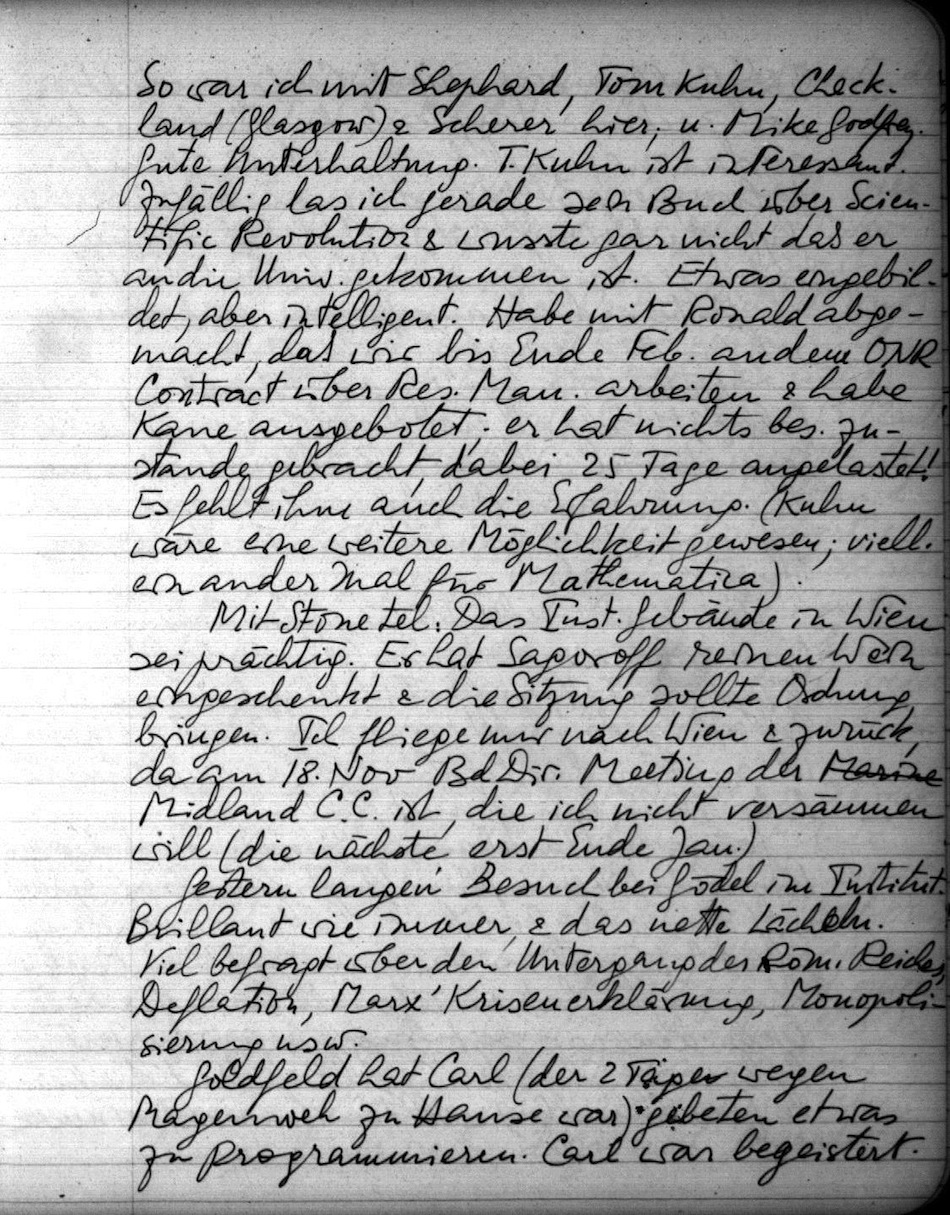 So war ich mit Shephard, Tom Kuhn, Check-
land (Glasgow) & Scherer hier, u. Mike Godfrey.
Gute Unterhaltung. T. Kuhn ist interessant.
Zufällig las ich gerade sein Buch über Scien-
tific Revolution & wusste gar nicht das er
an die Univ. gekommen ist. Etwas eingebil-
det, aber intelligent. Habe mit Ronald abge-
macht, das wir bis Ende Feb. an dem ONR
Contract über Res. Man. arbeiten & habe
Kane ausgebotet; er hat nichts bes. zu-
stande gebracht, dabei 25 Tage angelastet!
Es fehlt ihm auch die Erfahrung. (Kuhn
wäre eine weitere Möglichkeit gewesen; viell.
ein ander Mal für Mathematica).
Mit Stone tel. Das Inst. Gebäude in Wien
sei prächtig. Er hat Sagoroff reinen Wein
eingeschenkt & die Sitzung sollte Ordnung
bringen. Ich fliege nur nach Wien & zurück,
da am 18. Nov Bd Dir. Meeting der Marine
Midland C.C. ist, die ich nicht versäumen
will (die nächste erst Ende Jan.)
Gestern langen Besuch bei Gödel im Institut.
Brillant wie immer, & das nette Lächeln.
Viel befragt über den Untergang des Röm. Reiches,
Deflation, Marx' Krisenerklärung, Monopoli-
sierung usw.
Goldfeld hat Carl (der 2 Tage wegen
Magenweh zu Hause war) gebeten etwas
zu programmieren. Carl war begeistert.